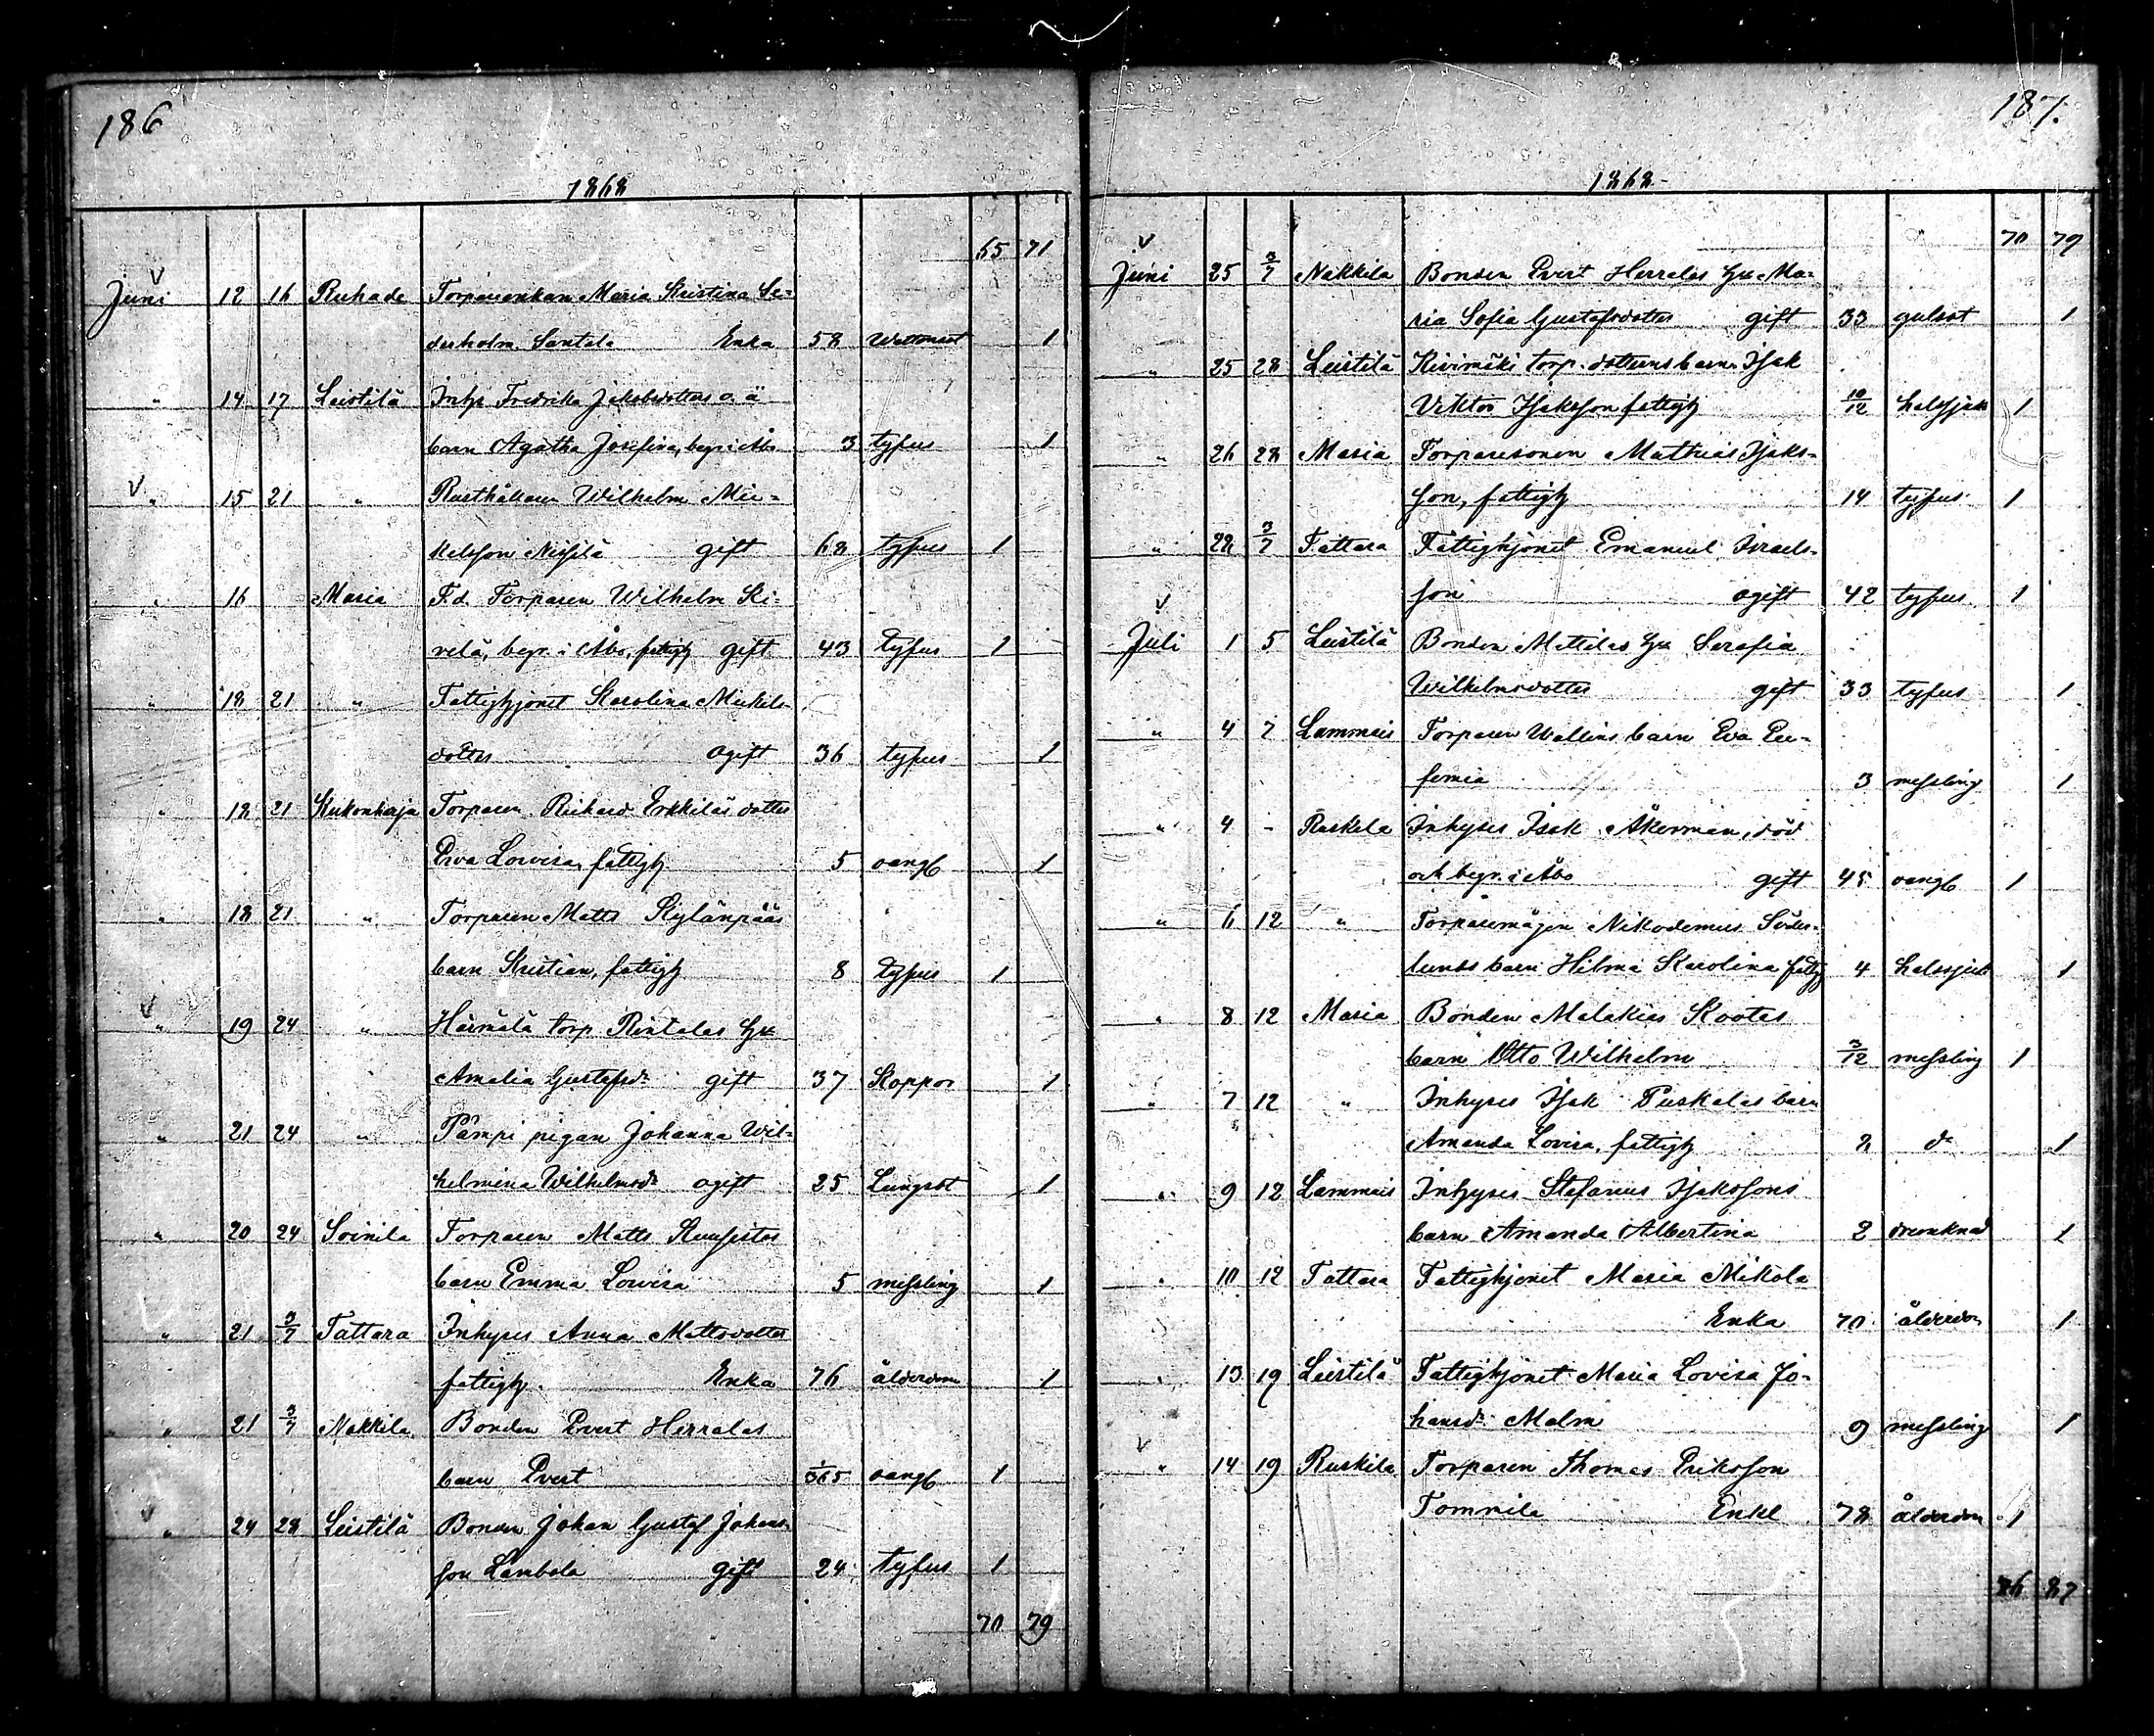 186
1868
65 71
Juni 12 16 Ruhade Torparenkan Maria Kristina Se-
derholm Santala Enka 58 Wattensot 1
" 14 17 Leistilä Inhs Fredrika Jakobsdotters o. ä
barn Agatha Josefina, begr. i Åbo 3 tyfus 1
" 15 21 " Rusthållaren Wilhelm Mic-
kelsson Nissilä gift 68 tyfus 1
" 16 Maria F.d. Torparen Wilhelm Ki-
velä, begr. i Åbo, fattigh gift 43 tyfus 1
" 18 21 " Fattighjonet Karolina Mickels-
dotter ogift 36 tyfus 1
" 18 21 Kukonharja Torparen Rickard Erkkiläs dotter
Eva Lovisa, fattigh 5 oangb 1
" 18 21 " Torparen Matts Kylänpääs
barn Kristian, fattigh 8 tyfus 1
" 19 24 " Härmälä torp. Rintalas Hu
Amalia Gustafsdr gift 37 Koppor 1
" 21 24 " Pämpi pigan Johanna Wil-
helmina Wilhelmsdr ogift 25 Lungsot 1
" 20 24 Soinila Torparen Matts Kuusistos
barn Emma Lovisa 5 messling 1
" 21 3/7 Tattara Inhyses Anna Mattsdotter
fattigh. Enka 76 ålderdom 1
" 21 3/7 Nakkila Bonden Evert Herralas
barn Evert 1/365 oangb 1
" 24 28 Leistilä Bonden Johan Gustaf Johans-
son Lambola gift 24 tyfus 1
70 79
187.
1868
70 79
Juni 25 3/7 Nakkila Bonden Evert Herralas Hu Ma-
ria Sofia Gustafsdotter gift 33 gulsot 1
" 25 28 Leistilä Kivimäki torp. dotterns barn Isak
Viktor Isaksson fattigh 10/12 halssjuk 1
" 26 28 Maria Torparesonen Mathias Isaks-
son, fattigh 14 tyfus 1
" 28 3/7 Tattara Fattighjonet Emanuel Israels-
son ogift 42 tyfus 1
Juli 1 5 Leistilä Bonden Mattilas Hu Serafia
Wilhelmsdotter gift 33 tyfus 1
" 4 7 Lammais Torparen Wallins barn Eva Eu-
femia 3 messling 1
" 4 - Ruskila Inhyses Isak Åkerman, död
och begr. i Åbo gift 45 oangb 1
" 6 12 " Torparemågen Nikodemus Söder-
lunds barn Hilma Karolina fattigh 4 halssjuk 1
" 8 12 Maria Bonden Malakias Kootas
barn Otto Wilhelm 3/12 messling 1
" 7 12 " Inhyses Isak Puskalas barn
Amanda Lovisa, fattigh 2 do 1
" 9 12 Lammais Inhyses Stefanus Isakssons
barn Amanda Albertina 2 drunknad 1
" 10 12 Tattara Fattighjonet Maria Mikola
Enka 70 ålderdom 1
" 13 19 Leistilä Fattighjonet Maria Lovisa Jo-
hansdr Malm 9 messling 1
" 14 19 Ruskila Torparen Thomas Eriksson
Tommila Enkl 78 ålderdom 1
76 87